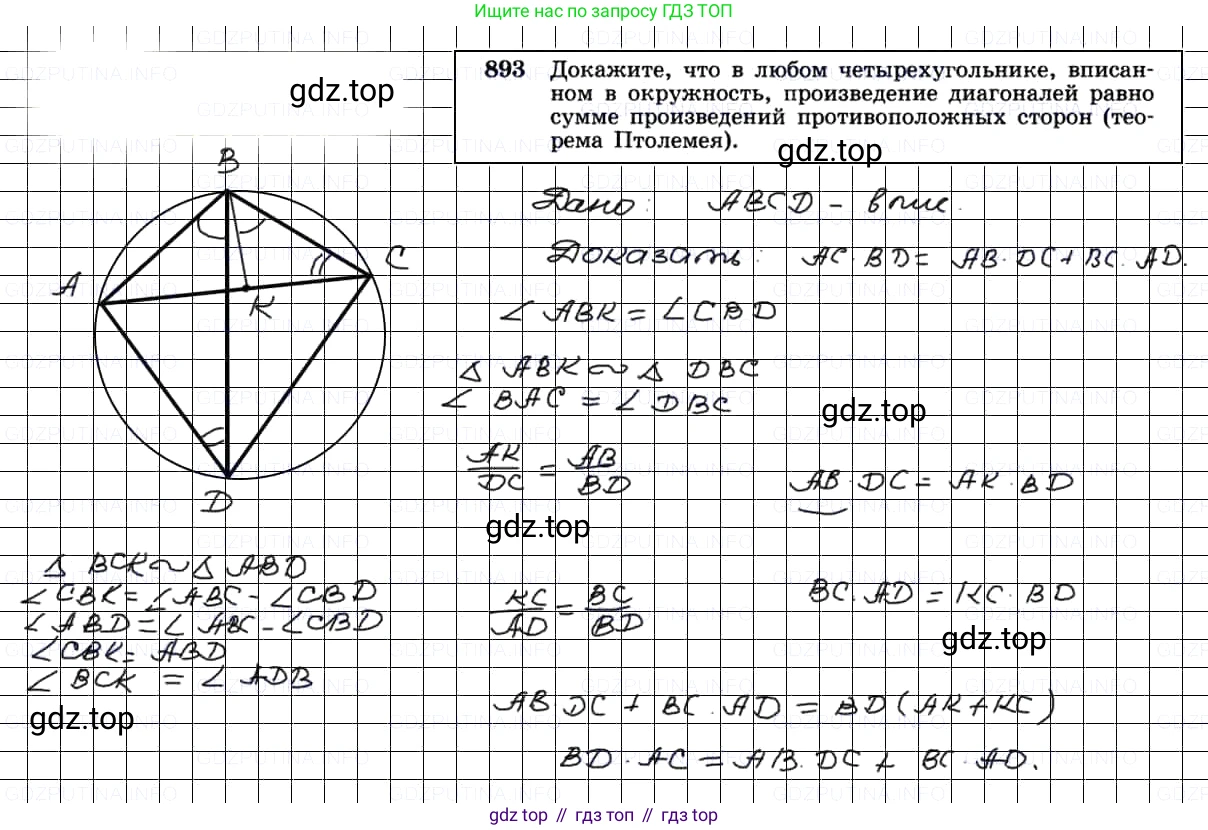 Ищите нас по запросу ГДЗ ТОП
gdz.top
893 Докажите, что в любом четырехугольнике, вписан-
ном в окружность, произведение диагоналей равно
сумме произведений противоположных сторон (тео-
рема Птолемея).
gdz.top
B
A
C
K
D
Дано: ABCD - впис.
Доказать: AC·BD = AB·DC + BC·AD.
∠ABK = ∠CBD
△ABK ~ △DBC
∠BAC = ∠DBC
gdz.top
AK/DC = AB/BD
AB·DC = AK·BD
gdz.top
△BCK ~ △ABD
∠CBK = ∠ABC - ∠CBD
∠ABD = ∠ABC - ∠CBD
∠CBK = ABD
∠BCK = ∠ADB
gdz.top
KC/AD = BC/BD
BC·AD = KC·BD
gdz.top
AB·DC + BC·AD = BD(AK+KC)
BD·AC = AB·DC + BC·AD.
gdz.top // гдз топ // gdz.top
GDZPUTINA.INFO